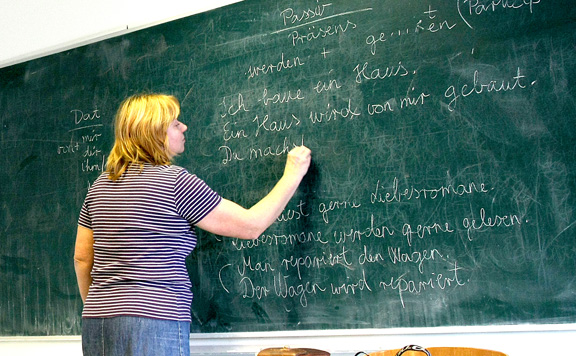 Passiv
Präsens
werden + ge....t/en (Partizip
Ich baue ein Haus.
Ein Haus wird von mir gebaut.
Du mach
Dat
von mir
dir
ihm
liest gerne Liebesromane.
Liebesromane werden gerne gelesen.
Man repariert den Wagen.
Der Wagen wird repariert.